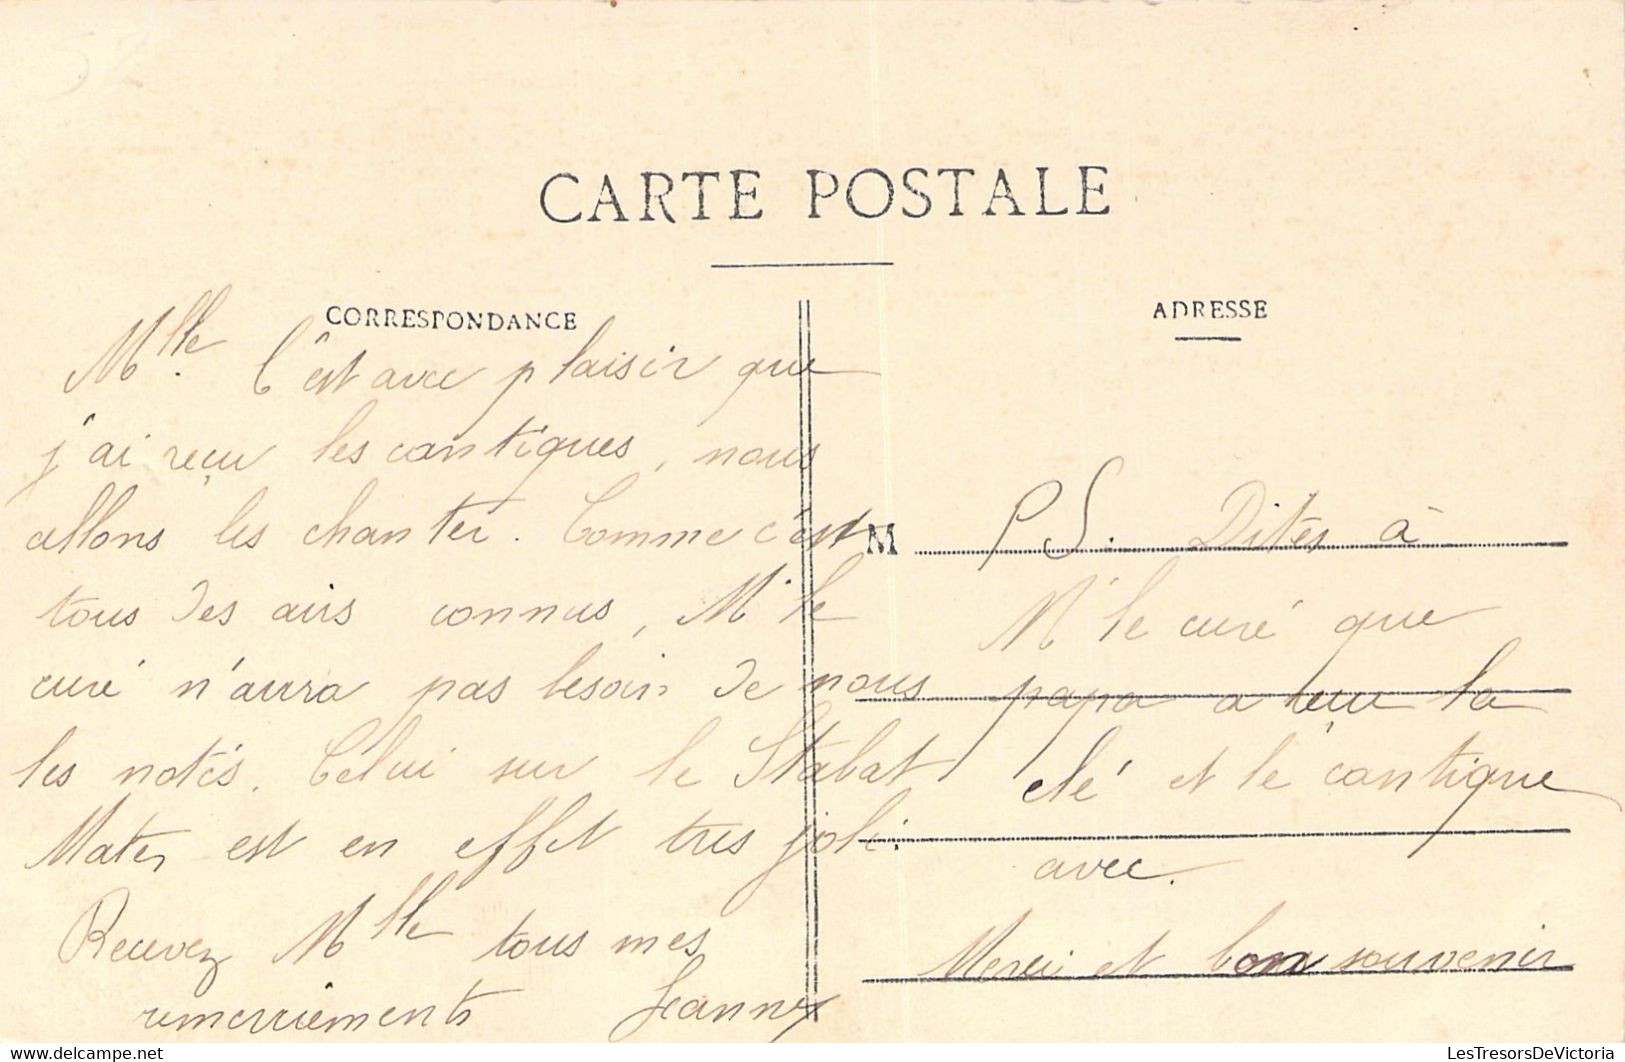 CARTE POSTALE
CORRESPONDANCE
Mlle. C'est avec plaisir que
j'ai reçu les cantiques, nous
allons les chanter. Comme c'est
tous des airs connus, M' le
curé n'aura pas besoin de nous
les notés. Celui sur le Stabat
Mater est en effet très joli.
Recevez Mlle tous mes
remerciements Jeanne
ADRESSE
M PS. Dites à
M' le curé que
papa a reçu la
clé et le cantique
avec.
Merci et bon souvenir
LesTresorsDeVictoria